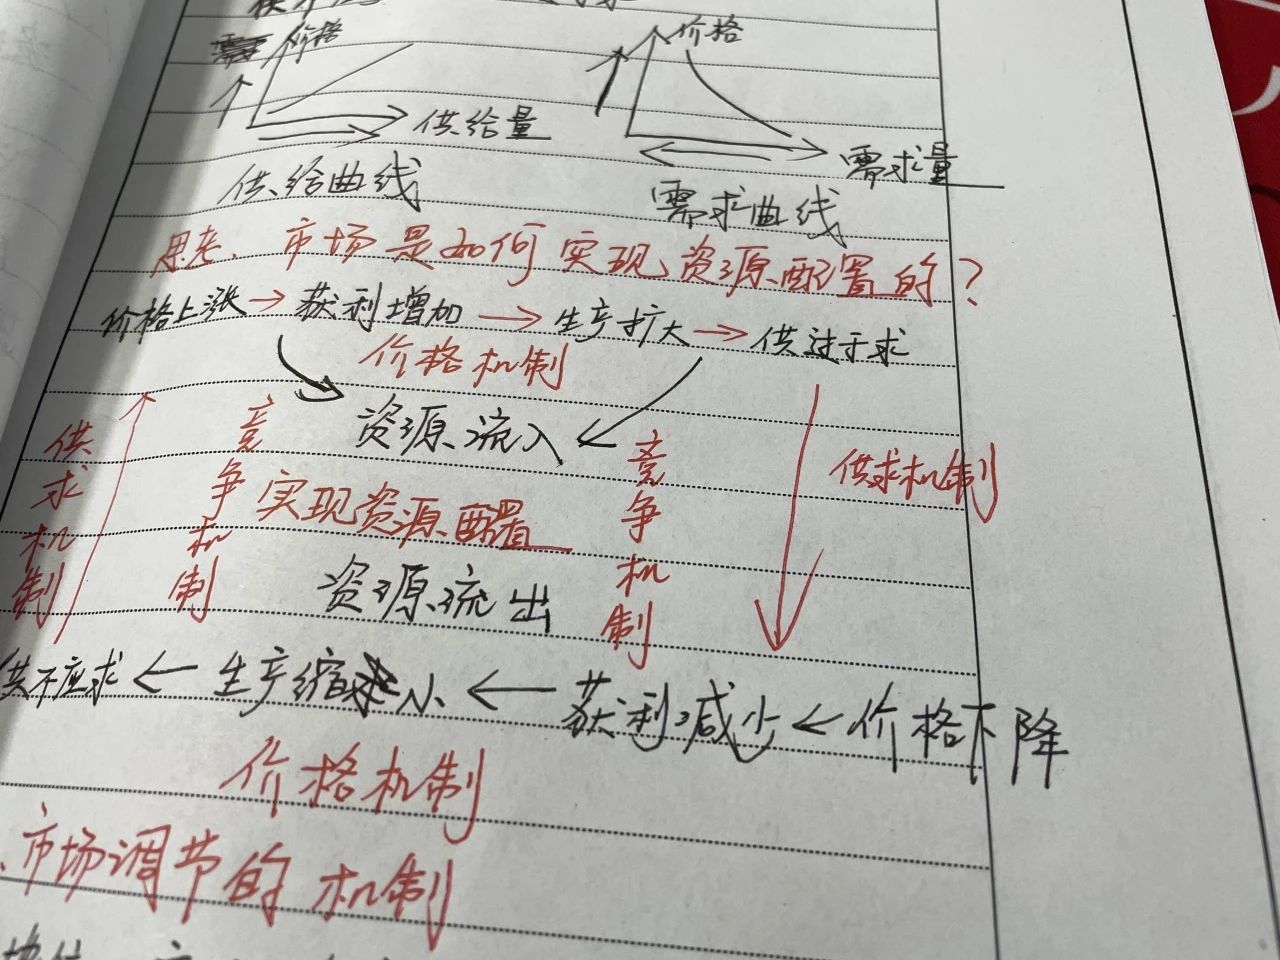 价格
价格
供给量
需求量
供给曲线
需求曲线
思考、市场是如何实现资源配置的？
价格上涨→获利增加→生产扩大→供过于求
价格机制
资源流入
供求机制
竞争机制
竞争机制
供求机制
实现资源配置
资源流出
供不应求←生产缩小←获利减少←价格下降
价格机制
、市场调节的机制